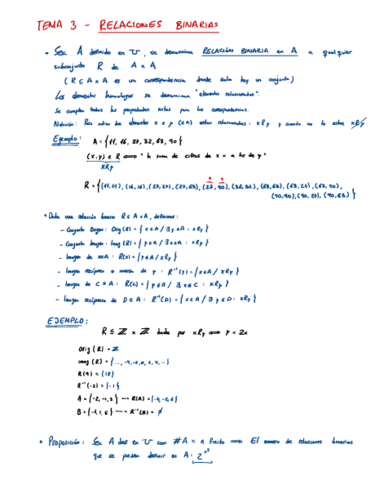 TEMA 3 - RELACIONES BINARIAS
• Sea A definido en U, se denomina RELACIÓN BINARIA en A a cualquier
subconjunto R de A x A
(R ⊆ A x A es un correspondencia donde solo hay un conjunto)
Los elementos homólogos se denominan "elementos relacionados".
Se cumplen todas las propiedades vistas para las correspondencias.
Notación: Para indicar dos elementos x e y (∈A) están relacionados: xRy, y cuando no lo están x R̸ y
Ejemplo: A = {11, 16, 27, 32, 63, 90}
(x,y) ∈ R ⟺ "la suma de cifras de x = a la de y"
xRy
R = {(11,11), (16,16), (27,27), (27,63), (27,90), (32,32), (63,63), (63,27), (63,90),
(90,90), (90,27), (90,63)}
• Dada una relación binaria R ⊆ A x A, definimos:
- Conjunto Origen: Orig (R) = {x ∈ A / ∃ y ∈ A : xRy}
- Conjunto Imagen: Imag (R) = {y ∈ A / ∃ x ∈ A : xRy}
- Imagen de x ∈ A : R(x) = {y ∈ A / xRy}
- Imagen recíproca o inversa de y : R⁻¹(y) = {x ∈ A / xRy}
- Imagen de C ⊆ A : R(C) = {y ∈ A / ∃ x ∈ C : xRy}
- Imagen recíproca de D ⊆ A : R⁻¹(D) = {x ∈ A / ∃ y ∈ D : xRy}
EJEMPLO:
R ⊆ ℤ x ℤ dada por xRy ⟺ y = 2x
Orig (R) = ℤ
Imag (R) = {..., -4, -2, 0, 2, 4, ...}
R(9) = {18}
R⁻¹(-2) = {-1}
A = {-2, -1, 3} → R(A) = {-4, -2, 6}
B = {-1, 1, 5} → R⁻¹(B) = ∅
• Proposición: Sea A def en U con #A = n finito ⟹ El número de relaciones binarias
que se pueden definir en A: 2ⁿ²